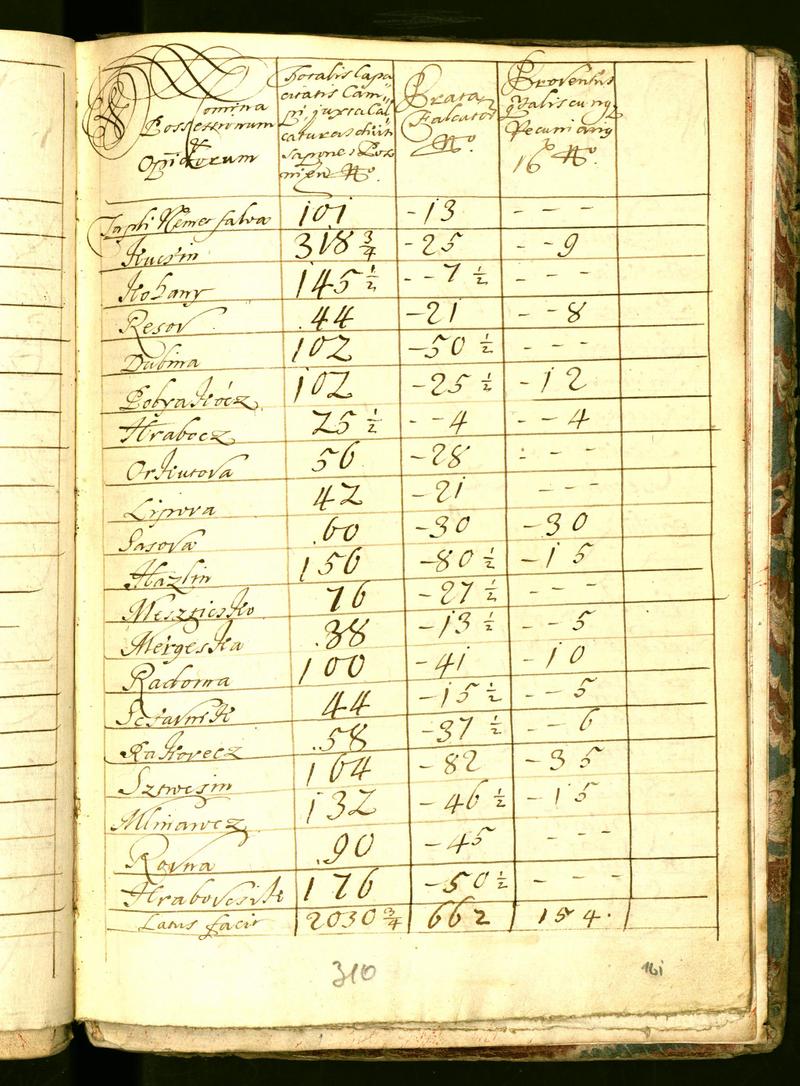 Nomina
Possessionum
et
Oppidorum
Totalis Capa
citatis Cam=
pi juxta Cal
caturas divis
Sapones Poso
nien No.
Prata
Falcator
No.
Proventus
qualiscunqz
Pecuniariq
16 No.
Tapli Nemes falva 101 -13 - - -
Kucsin 318 3/4 -25 - -9
Kohany 145 1/2 - -7 1/2 - - -
Resov .44 -21 - -8
Dubina 102 -50 1/2 - - -
PobraKócz 102 -25 1/2 -12
Hrabocz 25 1/2 - -4 - -4
OrKutova 56 -28 - - -
Lipova 42 -21 - - -
Sasova .60 -30 -30
Hazlin 156 -80 1/2 -15
MeszticsKo 76 -27 1/2 - - -
MergesKa .38 -13 1/2 - -5
Radoma 100 -41 -10
StavniK 44 -15 1/2 - -5
RaKovecz .58 -37 1/2 - -6
164 -82 -35
Mlinavcz 132 -46 1/2 -15
Rovna .90 -45 - - -
HrabovcsiK 176 -50 1/2 - - -
Latus facit 2030 3/4 662 154.
310
161